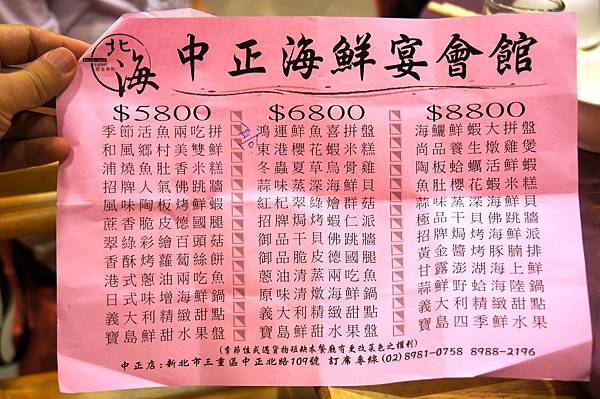 北海
中正海鮮宴會館
$5800 $6800 $8800
季節活魚兩吃拼 鴻運鮮魚喜拼盤 海鱺鮮蝦大拼盤
和風鄉村美雙鮮 東港櫻花蝦米糕 尚品養生燉雞煲
浦燒魚肚香米糕 冬蟲夏草烏骨雞 陶板蛤蠣活鮮蝦
招牌人氣佛跳牆 蒜味蒸深海鮮貝 魚肚櫻花蝦米糕
風味陶板烤鮮蝦 紅杞翠綠燴群菇 蒜茸蒸深海鮮貝
蔗香脆皮德國腿 招牌焗烤蝦仁派 極品干貝佛跳牆
翠綠彩繪百頭菇 御品干貝佛跳牆 招牌焗烤海鮮派
香酥烤蘿蔔絲餅 御品脆皮德國腿 黃金醬烤豚腩排
港式蔥油兩吃魚 蔥油清蒸兩吃魚 甘露澎湖海上鮮
日式味增海鮮鍋 原味清燉海鮮鍋 蒜鮮野蛤海陸鍋
義大利精緻甜點 義大利精緻甜點 義大利精緻甜點
寶島鮮甜水果盤 寶島鮮甜水果盤 寶島四季鮮水果
(季節佳式遇貨物短缺本餐廳有更改菜色之權利)
中正店:新北市三重區中正北路109號 訂席專線(02)8981-0758 8988-2196